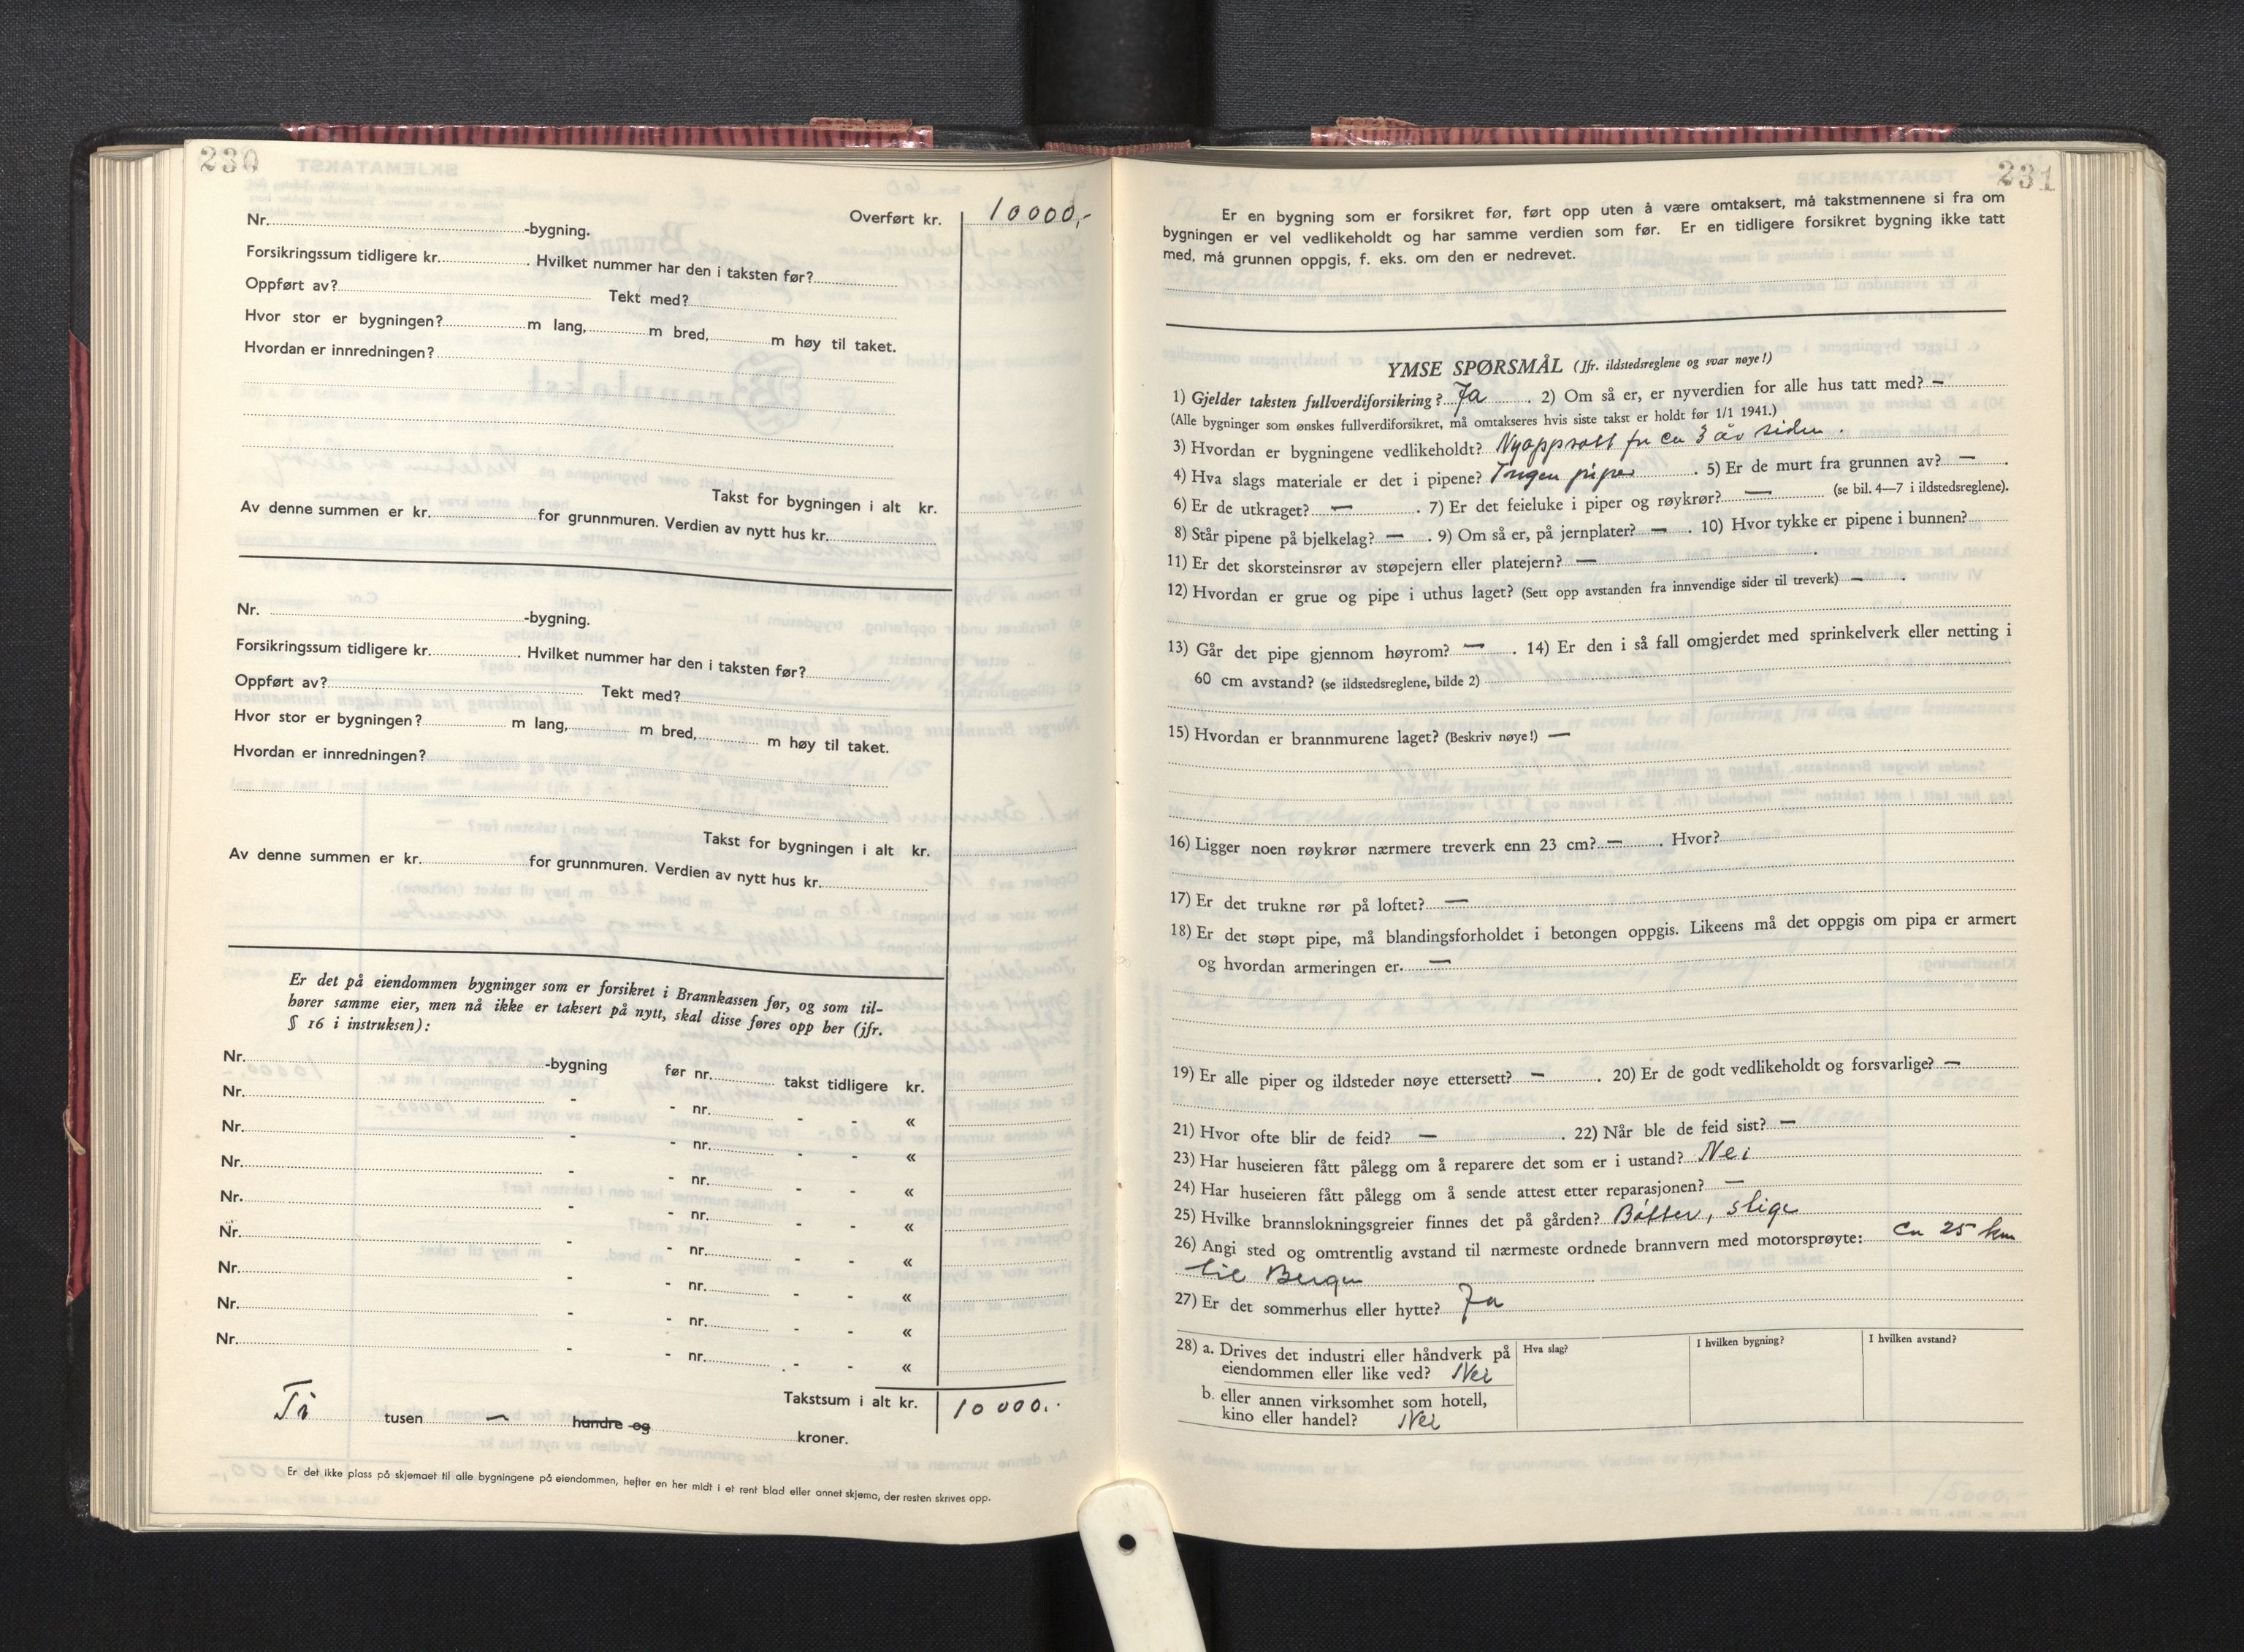 230
Overført kr. 10000,-
Nr. -bygning.
Forsikringssum tidligere kr. . Hvilket nummer har den i taksten før?
Oppført av? Tekt med?
Hvor stor er bygningen? m lang, m bred, m høy til taket.
Hvordan er innredningen?
Takst for bygningen i alt kr.
Av denne summen er kr. for grunnmuren. Verdien av nytt hus kr.
Nr. -bygning.
Forsikringssum tidligere kr. . Hvilket nummer har den i taksten før?
Oppført av? Tekt med?
Hvor stor er bygningen? m lang, m bred, m høy til taket.
Hvordan er innredningen?
Takst for bygningen i alt kr.
Av denne summen er kr. for grunnmuren. Verdien av nytt hus kr.
Er det på eiendommen bygninger som er forsikret i Brannkassen før, og som til-
hører samme eier, men nå ikke er taksert på nytt, skal disse føres opp her (jfr.
§ 16 i instruksen):
Nr. -bygning før nr. takst tidligere kr.
Nr. - - nr. - - «
Nr. - - nr. - - «
Nr. - - nr. - - «
Nr. - - nr. - - «
Nr. - - nr. - - «
Nr. - - nr. - - «
Nr. - - nr. - - «
Nr. - - nr. - - «
Takstsum i alt kr. 10000,-
Ti tusen — hundre og kroner.
Er det ikke plass på skjemaet til alle bygningene på eiendommen, hefter en her midt i et rent blad eller annet skjema, der resten skrives opp.
231
SKJEMATAKST
Er en bygning som er forsikret før, ført opp uten å være omtaksert, må takstmennene si fra om
bygningen er vel vedlikeholdt og har samme verdien som før. Er en tidligere forsikret bygning ikke tatt
med, må grunnen oppgis, f. eks. om den er nedrevet.
YMSE SPØRSMÅL (Jfr. ildstedsreglene og svar nøye!)
1) Gjelder taksten fullverdiforsikring? Ja . 2) Om så er, er nyverdien for alle hus tatt med? —
(Alle bygninger som ønskes fullverdiforsikret, må omtakseres hvis siste takst er holdt før 1/1 1941.)
3) Hvordan er bygningene vedlikeholdt? Nyoppsatt for ca 3 år siden.
4) Hva slags materiale er det i pipene? Ingen piper . 5) Er de murt fra grunnen av? — .
6) Er de utkraget? — . 7) Er det feieluke i piper og røykrør? — (se bil. 4—7 i ildstedsreglene).
8) Står pipene på bjelkelag? — . 9) Om så er, på jernplater? — . 10) Hvor tykke er pipene i bunnen?
11) Er det skorsteinsrør av støpejern eller platejern? — .
12) Hvordan er grue og pipe i uthus laget? (Sett opp avstanden fra innvendige sider til treverk) — .
13) Går det pipe gjennom høyrom? — . 14) Er den i så fall omgjerdet med sprinkelverk eller netting i
60 cm avstand? (se ildstedsreglene, bilde 2)
15) Hvordan er brannmurene laget? (Beskriv nøye!) —
16) Ligger noen røykrør nærmere treverk enn 23 cm? — . Hvor?
17) Er det trukne rør på loftet? —
18) Er det støpt pipe, må blandingsforholdet i betongen oppgis. Likeens må det oppgis om pipa er armert
og hvordan armeringen er. —
19) Er alle piper og ildsteder nøye ettersett? — . 20) Er de godt vedlikeholdt og forsvarlige? —
21) Hvor ofte blir de feid? — . 22) Når ble de feid sist? —
23) Har huseieren fått pålegg om å reparere det som er i ustand? Nei
24) Har huseieren fått pålegg om å sende attest etter reparasjonen? —
25) Hvilke brannslokningsgreier finnes det på gården? Bøtter, stige
26) Angi sted og omtrentlig avstand til nærmeste ordnede brannvern med motorsprøyte: ca 25 km
til Bergen
27) Er det sommerhus eller hytte? Ja
28) a. Drives det industri eller håndverk på
eiendommen eller like ved? Nei
b. eller annen virksomhet som hotell,
kino eller handel? Nei
Hva slag?
I hvilken bygning?
I hvilken avstand?